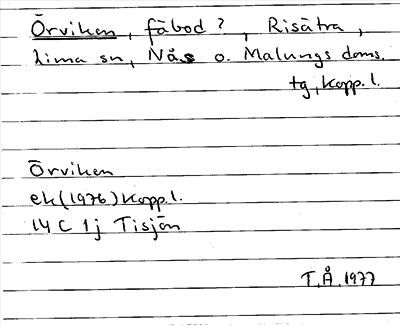 Örviken, fäbod?, Risätra,
Lima sn, Nås o. Malungs doms.
tg, Kopp. l.
Örviken
ek (1976) Kopp. l.
14 C 1 j Tisjön
T.Å. 1977